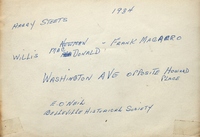 HARRY STEETS 1934
HERMAN
WILLIS MAC DONALD - FRANK MAGARRO
WASHINGTON AVE OPPOSITE HOWARD
PLACE
E. O'NEIL
BELLEVILLE HISTORICAL SOCIETY